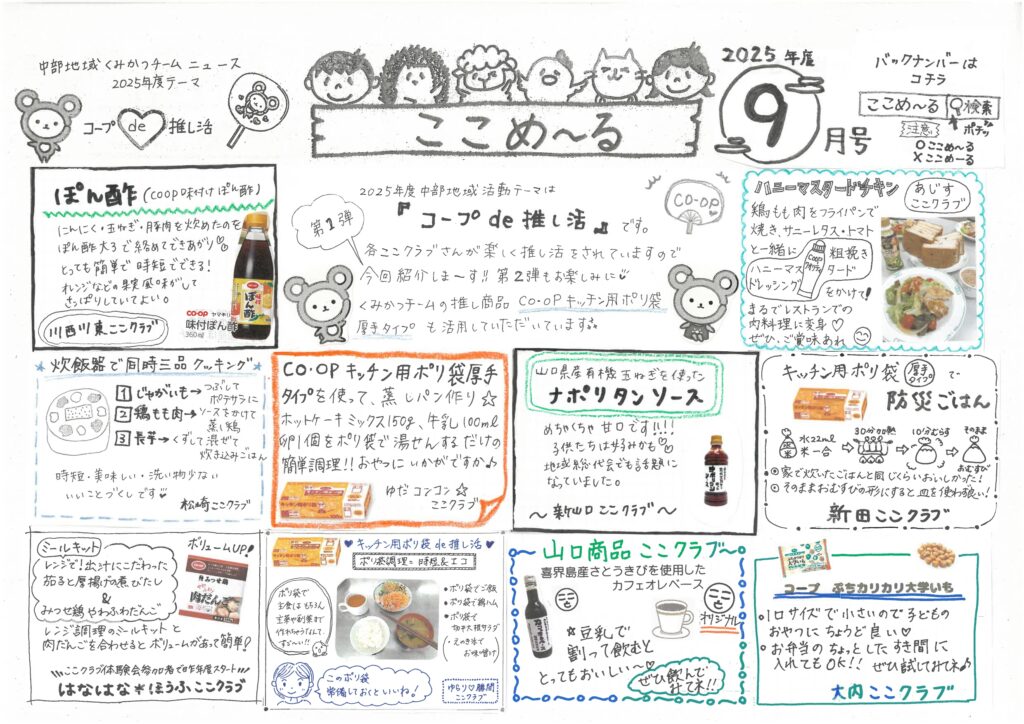 中部地域くみかつチームニュース
2025年度テーマ
コープ de 推し活
ここめ～る
2025年度
9
月号
バックナンバーは
コチラ
ここめ～る 検索
ポチッ
注意
○ここめ～る
×ここめーる
ぽん酢(COOP味付けぽん酢)
にんにく・玉ねぎ・豚肉を炒めたのを
ぽん酢大3で絡めてできあがり♡
とっても簡単で時短でできる!
オレンジなどの果実風味がして
さっぱりしていてよい。
川西川東ここクラブ
CO・OP ヤマキ
味付ぽん酢
360ml
第1弾
2025年度中部地域活動テーマは
『コープde推し活』です。
各ここクラブさんが楽しく推し活をされていますので
今回紹介しま～す!!第2弾もお楽しみに♥
くみかつチームの推し商品 CO・OPキッチン用ポリ袋
厚手タイプも活用していただいています♪
CO-OP
ハニーマスタードチキン
あじす
ここクラブ
鶏もも肉をフライパンで
焼き、サニーレタス・トマト
と一緒に 粗挽き
ハニーマスタード
ドレッシング をかけて!
まるでレストランでの
肉料理に変身♡
ぜひ、ご賞味あれ
炊飯器で同時三品クッキング
1 じゃがいも→つぶして
ポテサラに
2 鶏もも肉→ソースをかけて
蒸し鶏
3 長芋→くずして混ぜて
炊き込みごはん
時短・美味しい・洗い物少ない
いいことづくしです♥
松崎ここクラブ
CO・OPキッチン用ポリ袋厚手
タイプを使って、蒸しパン作り☆
ホットケーキミックス150g、牛乳100ml
卵1個をポリ袋で湯せんするだけの
簡単調理!!おやつにいかがですか♪
ゆだコンコン☆
ここクラブ
山口県産有機玉ねぎを使った
ナポリタンソース
めちゃくちゃ甘口です!!!
子供たちは好みかも♡
地域総代会でも話題に
なっていました。
～新山口ここクラブ～
キッチン用ポリ袋 厚手タイプ で
防災ごはん
水22ml
米一合
30分加熱
10分むらす
そのまま
おむすび
◎家で炊いたごはんと同じくらいおいしかった!
◎そのままおむすびの形にすると皿を使わない!
新田ここクラブ
ミールキット
レンジで!出汁にこだわった
茄子と厚揚げの煮びたし
&
みつせ鶏やわふわだんご
ボリュームUP!
みつせ鶏
肉だんご
レンジ調理のミールキットと
肉だんごを合わせるとボリュームがあって簡単!
ここクラブ体験会参加者で昨年度スタート
はなしはな*ほうふここクラブ
♥キッチン用ポリ袋de推し活♥
ポリ袋調理=時短&エコ
ポリ袋で
主食はもちろん
主菜や副菜まで
作れゃうなんて
すごーい!!
●ポリ袋でご飯
●ポリ袋で鶏ハム
●ポリ袋で
このポリ袋
常備しておくといいね!
ゆらり♡勝間
ここクラブ
山口商品ここクラブ
喜界島産さとうきびを使用した
カフェオレベース
オリジナル
☆豆乳で
割って飲むと
とってもおいしい～♡
ぜひ飲んで
みて下さい!!
コープ ぷちカリカリ大学いも
・1口サイズで小さいので子どもの
おやつにちょうど良い♡
・お弁当のちょっとしたすき間に
入れてもOK!! ぜひ試してみて♪
大内ここクラブ